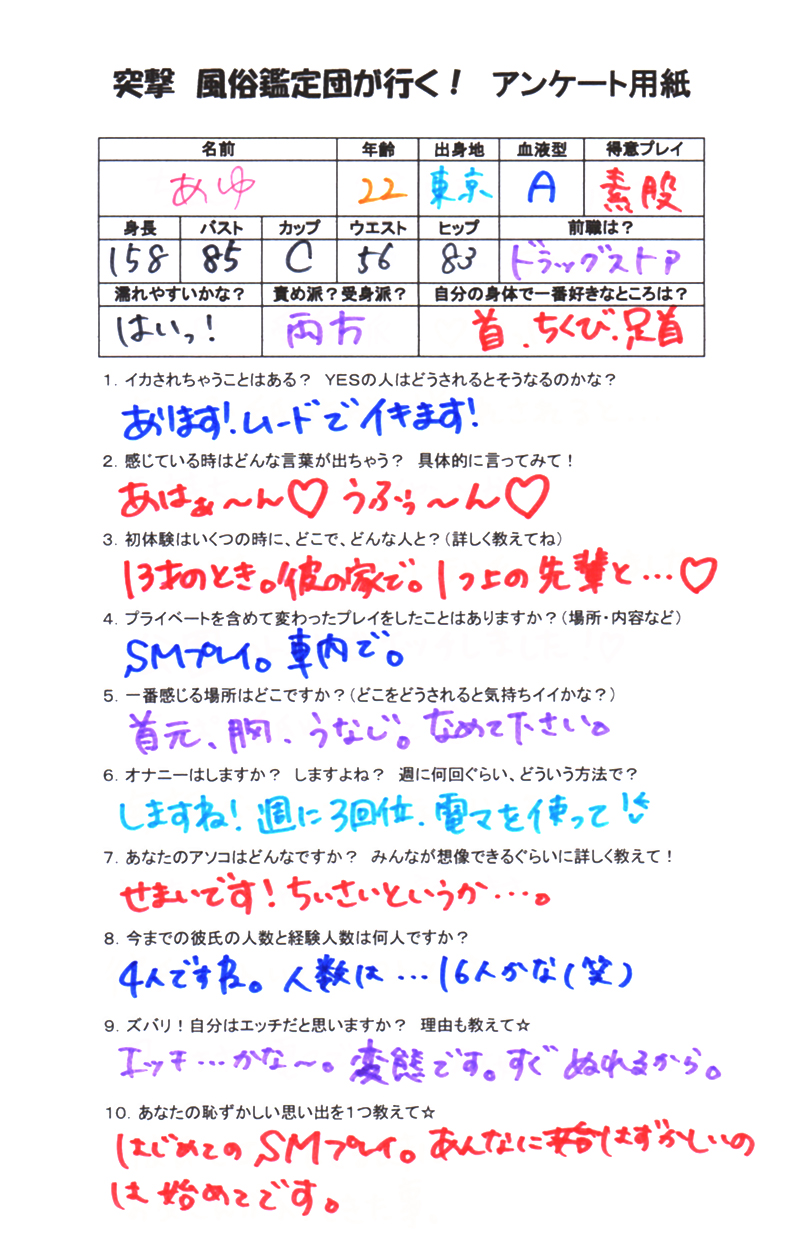 突撃 風俗鑑定団が行く! アンケート用紙
名前 年齢 出身地 血液型 得意プレイ
あゆ 22 東京 A 素股
身長 バスト カップ ウエスト ヒップ 前職は?
158 85 C 56 83 ドラッグストア
濡れやすいかな? 責め派?受身派? 自分の身体で一番好きなところは?
はいっ! 両方 首、ちくび、足首
1. イカされちゃうことはある? YESの人はどうされるとそうなるのかな?
あります!ムードでイキます!
2. 感じている時はどんな言葉が出ちゃう? 具体的に言ってみて!
あはぁ〜ん♡ うふぅ〜ん♡
4. プライベートを含めて変わったプレイをしたことはありますか?(場所・内容など)
SMプレイ。車内で。
5. 一番感じる場所はどこですか?(どこをどうされると気持ちイイかな?)
首元、胸、うなじ。なめて下さい。
6. オナニーはしますか? しますよね? 週に何回ぐらい、どういう方法で?
しますね!週に3回位、電マを使って
7. あなたのアソコはどんなですか? みんなが想像できるぐらいに詳しく教えて!
せまいです!ちぃさいというか…。
8. 今までの彼氏の人数と経験人数は何人ですか?
4人ですね。人数は…16人かな(笑)
9. ズバリ!自分はエッチだと思いますか? 理由も教えて☆
エッチ…かな〜。変態です。すぐぬれるから。
10. あなたの恥ずかしい思い出を1つ教えて☆
はじめてのSMプレイ。あんなにはずかしいの
は始めてです。